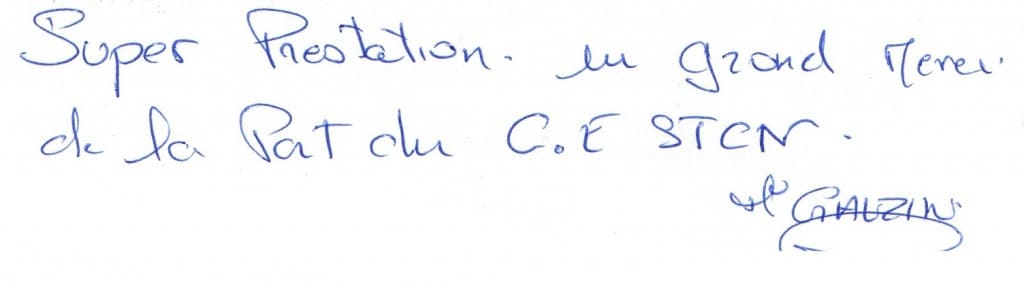 Super Prestation. un grand Merci.
de la Part du C.E STCN.
GALZIN